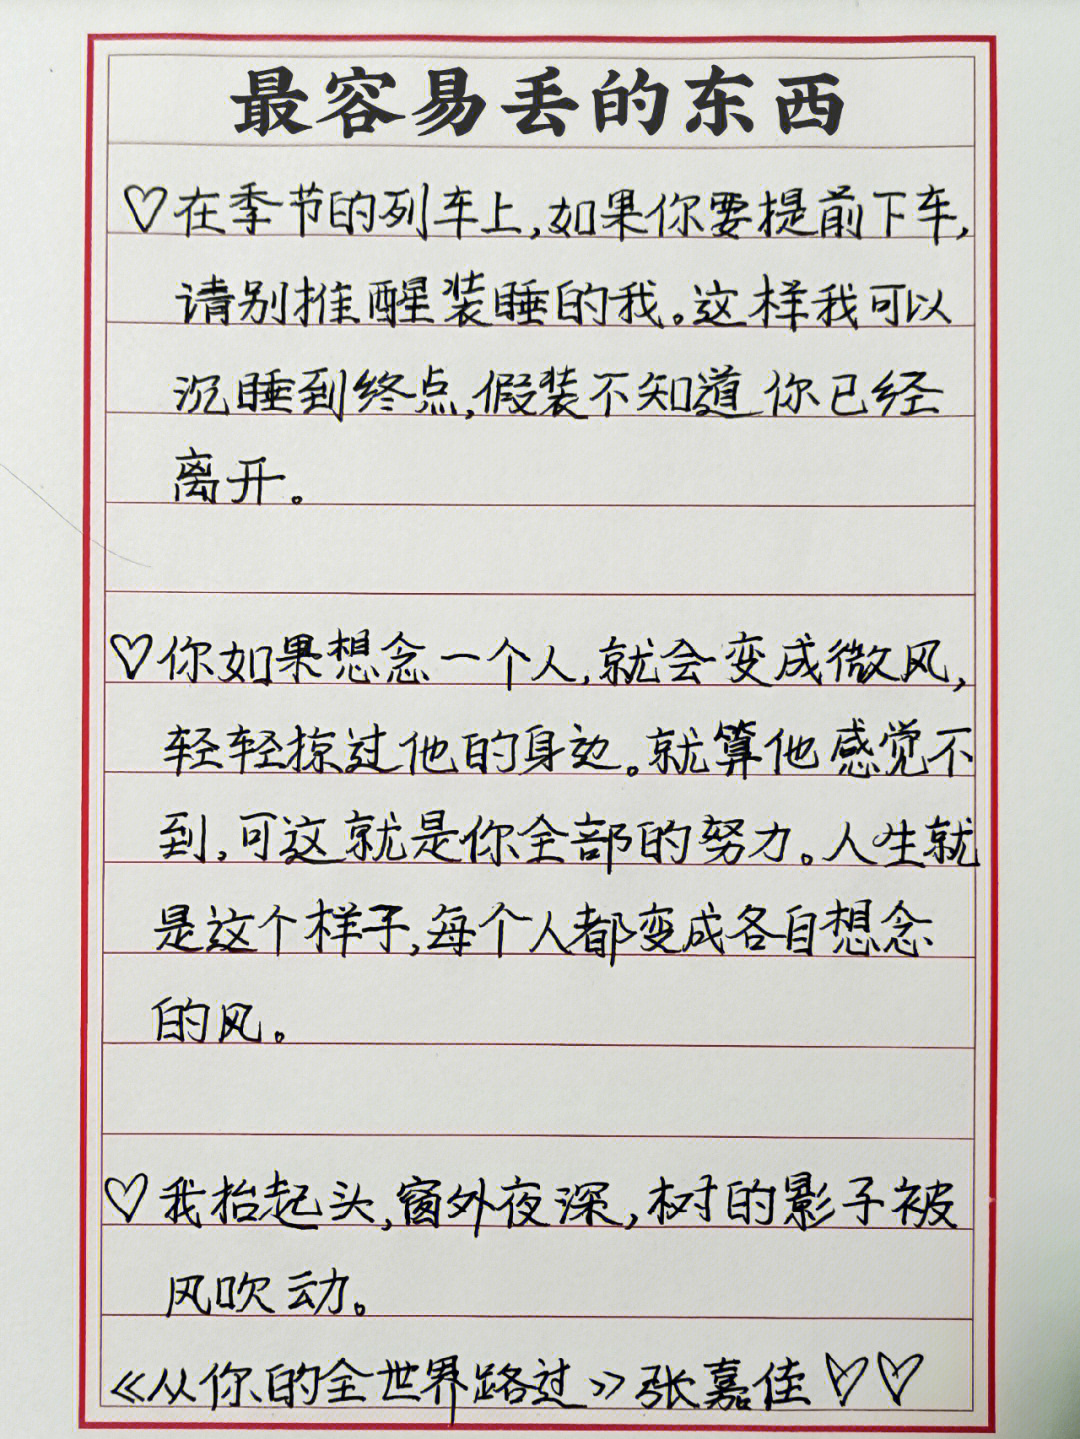 最容易丢的东西
♡在季节的列车上,如果你要提前下车,
请别推醒装睡的我。这样我可以
沉睡到终点,假装不知道你已经
离开。
♡你如果想念一个人,就会变成微风,
轻轻掠过他的身边。就算他感觉不
到,可这就是你全部的努力。人生就
是这个样子,每个人都变成各自想念
的风。
♡我抬起头,窗外夜深,树的影子被
风吹动。
《从你的全世界路过》张嘉佳♡♡